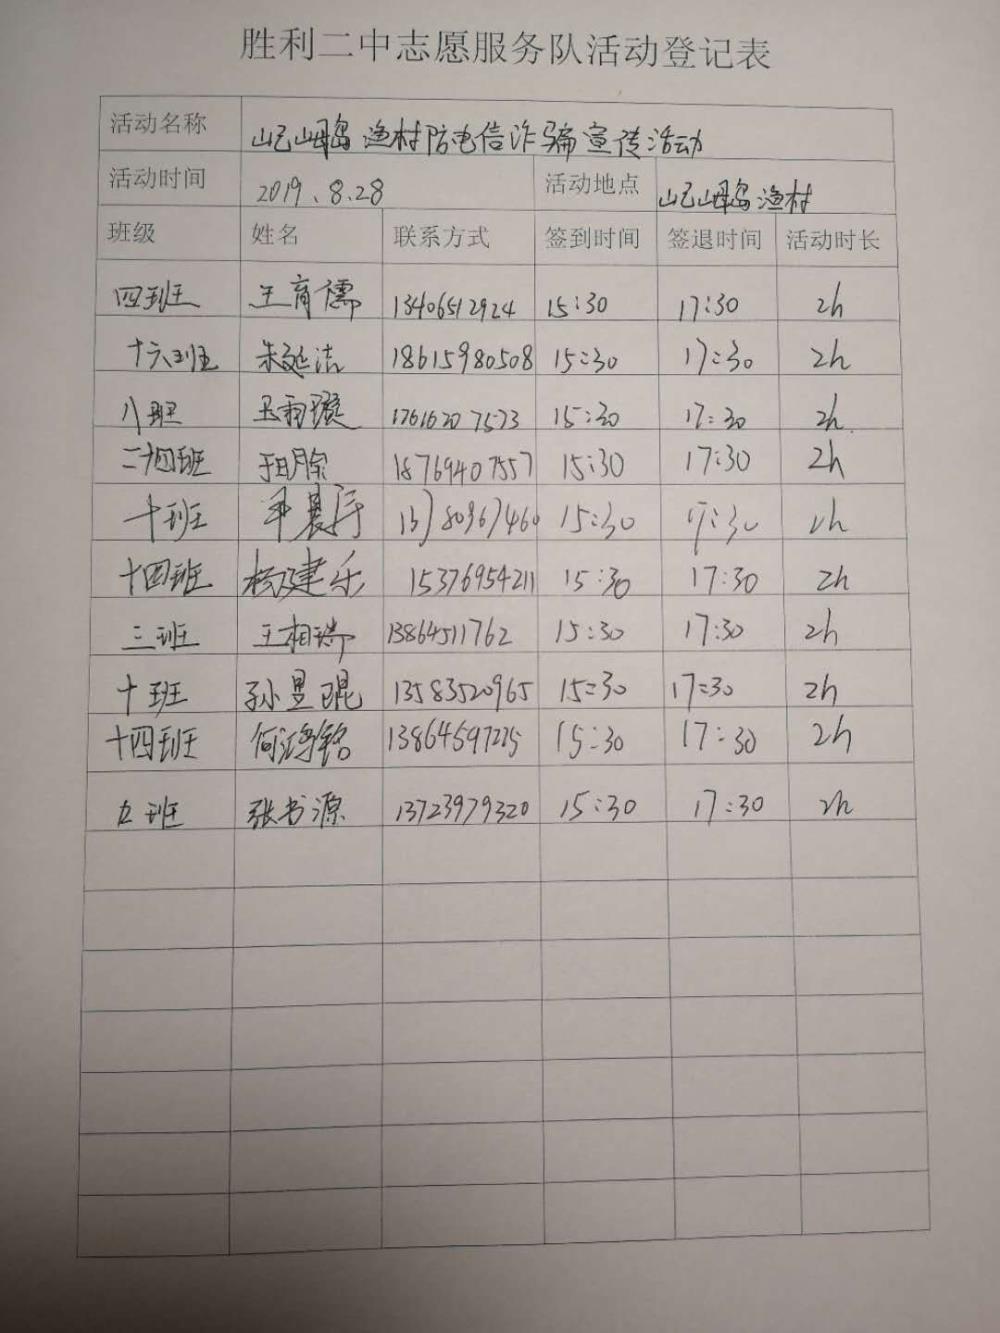 胜利二中志愿服务队活动登记表
活动名称 屺㟂岛渔村防电信诈骗宣传活动
活动时间 2019.8.28 活动地点 屺㟂岛渔村
班级 姓名 联系方式 签到时间 签退时间 活动时长
四班 王育儒 13406512924 15:30 17:30 2h
十六班 朱延洁 18615980508 15:30 17:30 2h
八班 王雨璇 17616207573 15:30 17:30 2h
二十四班 18769407557 15:30 17:30 2h
十班 13780967460 15:30 17:30 2h
十四班 杨建乐 15376954211 15:30 17:30 2h
三班 王相瑞 13864511762 15:30 17:30 2h
十班 孙昱琨 13583520965 15:30 17:30 2h
十四班 何鸿铭 13864597225 15:30 17:30 2h
五班 张书源 13723979320 15:30 17:30 2h